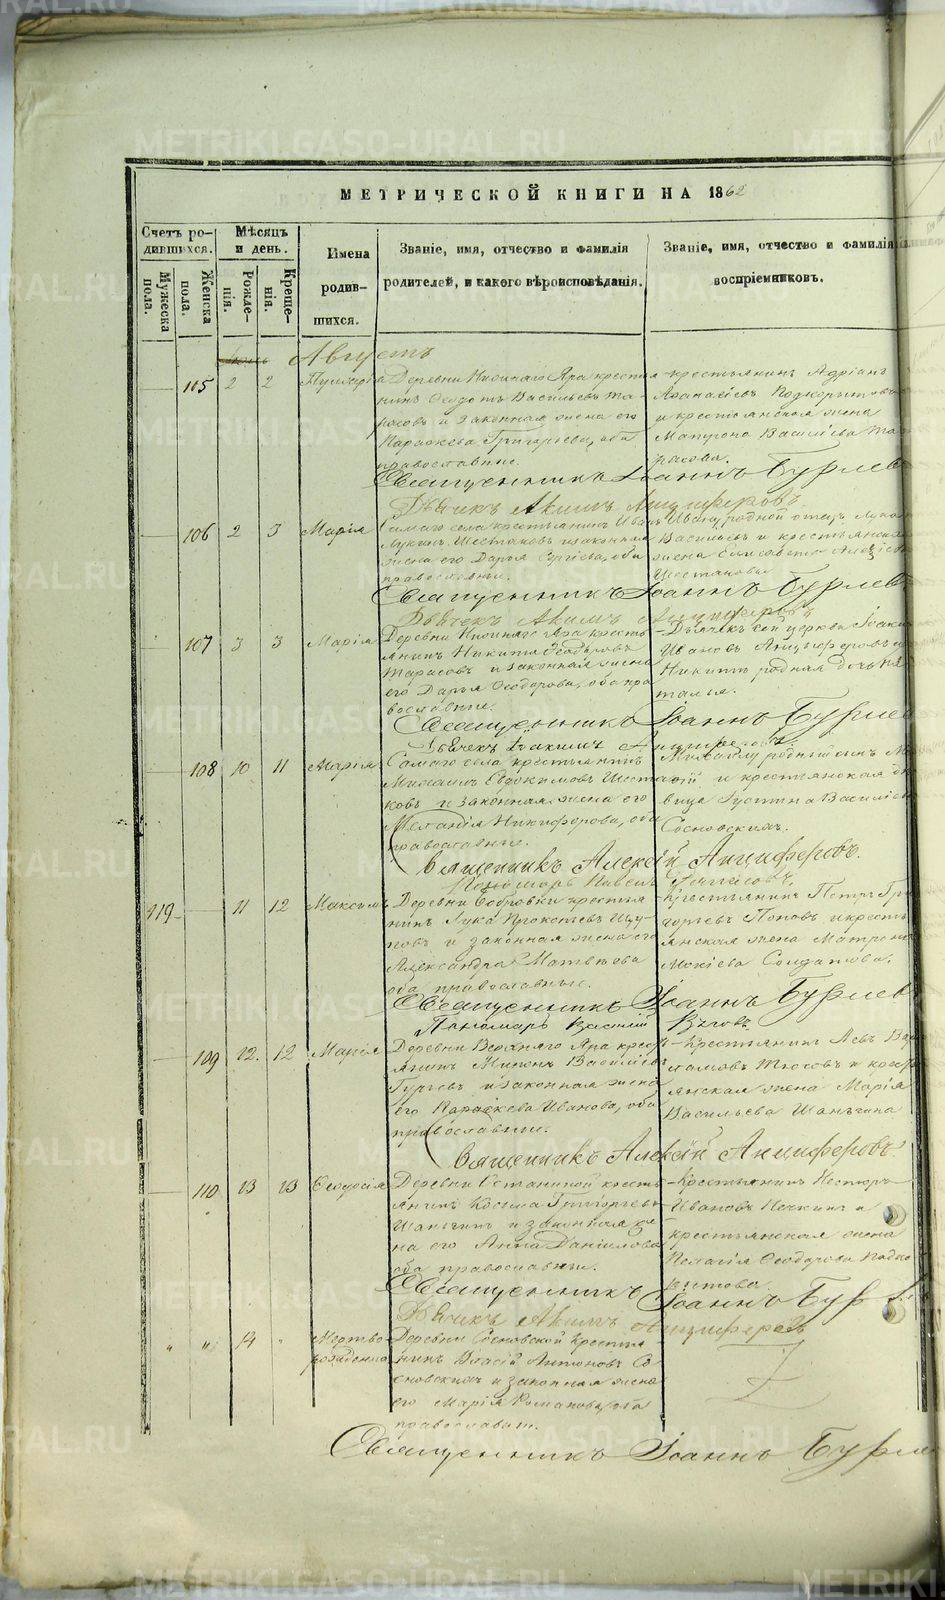 МЕТРИЧЕСКОЙ КНИГИ НА 1862
Счетъ родившихся.
Мѣсяцъ и день.
Имена родившихся.
Званіе, имя, отчество и фамилія родителей, и какого вѣроисповѣданія.
Званіе, имя, отчество и фамилія
воспріемниковъ.
Мужеска пола.
Женска пола.
Рожденія.
Крещенія.
Августъ
105 2 2
Деревни Нижняго Яра крестья
нинъ Ѳеодотъ Васильевъ Та-
расовъ и законная жена его
Параскева Григорьева, оба
православные.
крестьянинъ Адріанъ
Аѳанасіевъ Подкорытовъ
и крестьянская жена
Матрона Васильева Та
расова.
Священникъ Іоаннъ Бурлев
Дьячекъ Акимъ Анциферовъ
106 2 3 Марія
Самаго села крестьянинъ Иванъ
Лукинъ Шестаковъ и законная
жена его Дарья Сергіева, оба
православные.
Ивану родной отецъ Лука
Васильевъ и крестьянская
жена Елисавета
Шестакова
Священникъ Іоаннъ Бурлев
Дьячекъ Акимъ Анциферовъ
107 3 3 Марія
Деревни Нижняго Яра кресть
янинъ Никита Ѳеодоровъ
Тарасовъ и законная жена
его Дарья Ѳеодорова, оба пра
вославные.
Дьячекъ сей церкви Іоаки
Ивановъ Анциферовъ и
Никиты родная дочь На
талья.
Священникъ Іоаннъ Бурлев
Дьячекъ Іоакимъ Анциферовъ
108 10 11 Марія
Самаго села крестьянинъ
Михаилъ Евдокимовъ Шеста
ковъ и законная жена его
Меланія Никифорова, оба
православные.
Михаилу родный сынъ
и крестьянская дѣ
вица Іустина Василіе
Сосновскихъ.
Священникъ Алексій Анциферовъ.
Пономарь Павелъ
119 11 12 Максимъ
Деревни Бобровки крестья
нинъ Лука Прокопьевъ Щу
повъ и законная жена его
Александра Матвѣева
оба православные.
Крестьянинъ Петръ Гри
горьевъ Поповъ и кресть
янская жена Матрона
Мокіева Солдатова.
Священникъ Іоаннъ Бурлев
Пономарь Василій
109 12 12 Марія
Деревни Верхняго Яра кресть
янинъ Миронъ Васильевъ
Гурьевъ и законная жена
его Параскева Иванова, оба
православные.
Крестьянинъ Левъ Вар
ламовъ Тюсовъ и крест
янская жена Марія
Васильева Шаньгина
Священникъ Алексій Анциферовъ
110 13 13
Деревни Останиной кресть
янинъ Косьма Григорьевъ
Шаньгинъ и законная же
на его Анна Даніилова
оба православные.
Крестьянинъ Несторъ
Ивановъ Нечкинъ и
крестьянская жена
Пелагія Ѳеодорова Подко
рытова
Священникъ Іоаннъ Бурлев
Дьячекъ Акимъ Анциферовъ
" " 14 " Мертво
рожденно
Деревни Сосновской крестья
нинъ Власій Антоновъ Со
сновскихъ и законная жена
его Марія Романова, оба
православные.
Священникъ Іоаннъ Бурле